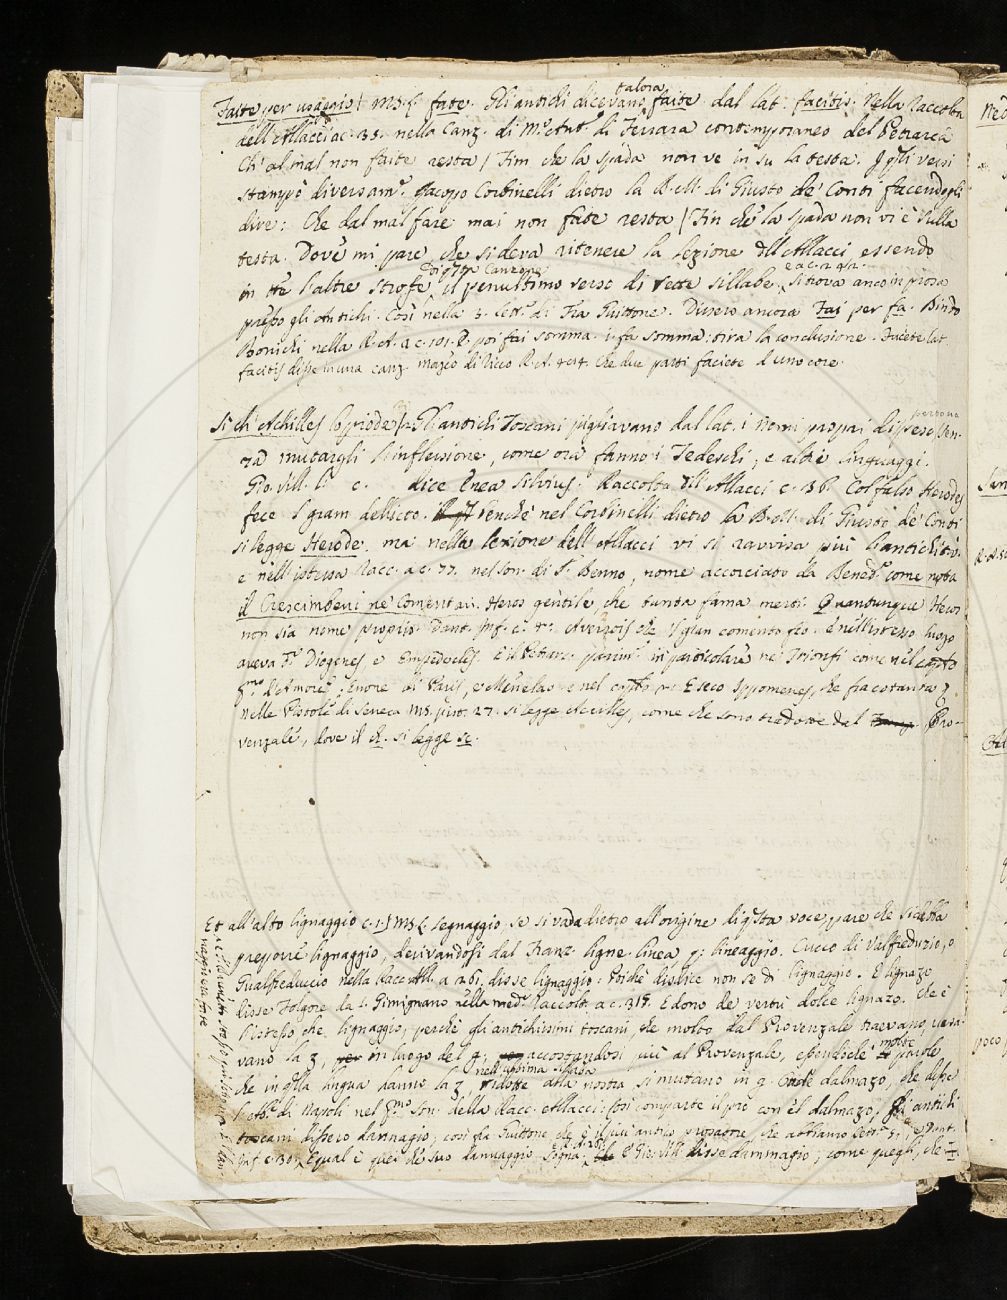 Faite per usaggio) MS. f. fate. Gli antichi dicevano talora faite dal lat. facitis. Nella Raccolta
dell'Allacci a c. 35. nella Canz. di M.° Ant.° di Ferrara contemporaneo del Petrarca
Ch' al mal non faite resta / Fim che la spada non ve in su la testa. I q.li versi
stampò diversam.e Jacopo Corbinelli dietro la B. M. di Giusto de' Conti facendogli
dire: Che dal mal fare mai non fate resta / Fin che la spada non vi è sulla
testa. Dove mi pare, che si deva ritenere la lezione dell'Allacci essendo
in tte l'altre strofe di q.sta Canzone il penultimo verso di sette sillabe, si trova anco in prosa
presso gli Antichi. Così nella 3. lett.a di Fra Guittone. Dissero ancora Fai per fa. Bindo
Bonichi nella R. A. a c. 101. E poi fai somma: i. fa somma: tira la conclusione. Facete lat.
facitis disse in una canz. di Ricco R. A. 404. che due parti faciete d uno core.
Sì ch' Achilles lo priede) Gli antichi Toscani pigliavano dal lat. i nomi propri di persona, sen-
za mutargli l'inflessione, come ora fanno i Tedeschi, e altri linguaggi.
Gio. Vill. l. c. dice Enea Silvius. Raccolta dell'Allacci c. 36. Col falso Herodes
fece l gram delicto. benchè nel Corbinelli dietro la B. M. di Giusto de' Conti
si legge Herode. ma nella lezione dell'Allacci vi si ravvisa più l'antichità.
e nell'istessa Racc. a c. 77. nel son. di S. Benno, nome accorciato da Bened.° come nota
il Crescimbeni ne' Comentari. Heros gentile, che tanta fama merti. Quantunque Heros
non sia nome proprio. Dant. Inf. c. 4. Averrois che 'l gran comento feo. e nell'istesso luogo
aveva d.° Diogenes e Empedocles. E il Petrarc. parim. in particolare ne' Trionfi come nel cap.to
p.mo d'Amore; Amore di Paris, e Menelao e nel cap.to Eseco Ippomenes, che fra cotanta
nelle Pistole di Seneca MS. pist. 27. si legge Accilles, come che sono tradotte dal Pro-
venzale, dove il ch. si legge se.
Et all'alto lignaggio c. 1.) MS. f. legnaggio. se si vada dietro all'origine di q.sta voce, pare che si debba
preporre lignaggio, derivandosi dal Franz. ligne linea q: lineaggio. Cucco di Valfreduzio, o
Gualfreduccio nella Racc. All. a 261. disse lignaggio: Poichè dislice non se di lignaggio. E lignazo
disse Folgore da S. Gimignano nella med.a Raccolta a c. 315. E dono de vertù dolce lignazo. che è
l'istesso che lignaggio, perchè gli antichissimi toscani che molto dal Provenzale traevano, usa-
vano la z, in luogo del g; accostandosi più al Provenzale, essendochè molte parole,
che in q.lla lingua hanno la z, nell'ultima sillaba ridotte alla nostra si mutano in g. Onde dalmazo, che disse
l'Ab.e di Napoli nel p.mo Son. della Racc. Allacci: Così comparte il pro con el dalmazo, gli antichi
toscani dissero dannagio; così fra Guittone che è il più antico prosatore, che abbiamo lett.a 5.; Dant.
Inf. c. 30. E qual è quei che suo dannaggio sogna. E Gio. Vill. disse dammagio; come quegli, che